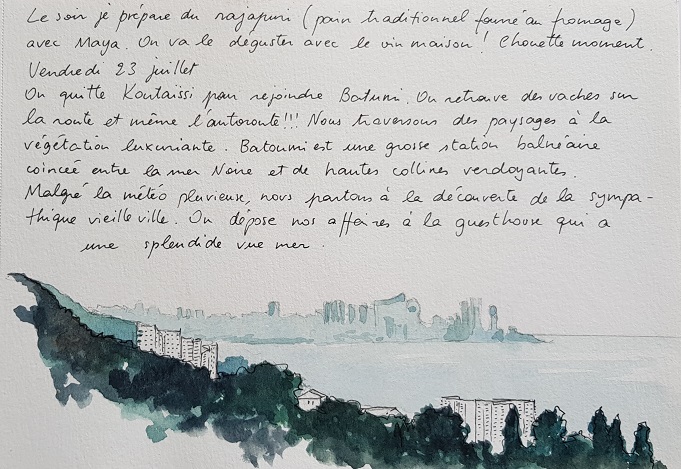 Le soir je prépare du xajapuri (pain traditionnel fourré au fromage)
avec Maya. On va le déguster avec le vin maison ! Chouette moment.
Vendredi 23 juillet
On quitte Koutaïssi pour rejoindre Batumi. On retrouve des vaches sur
la route et même l'autoroute!!! Nous traversons des paysages à la
végétation luxuriante. Batoumi est une grosse station balnéaire
coincée entre la mer Noire et de hautes collines verdoyantes.
Malgré la météo pluvieuse, nous partons à la découverte de la sympa-
thique vieille ville. On dépose nos affaires à la guesthouse qui a
une splendide vue mer.